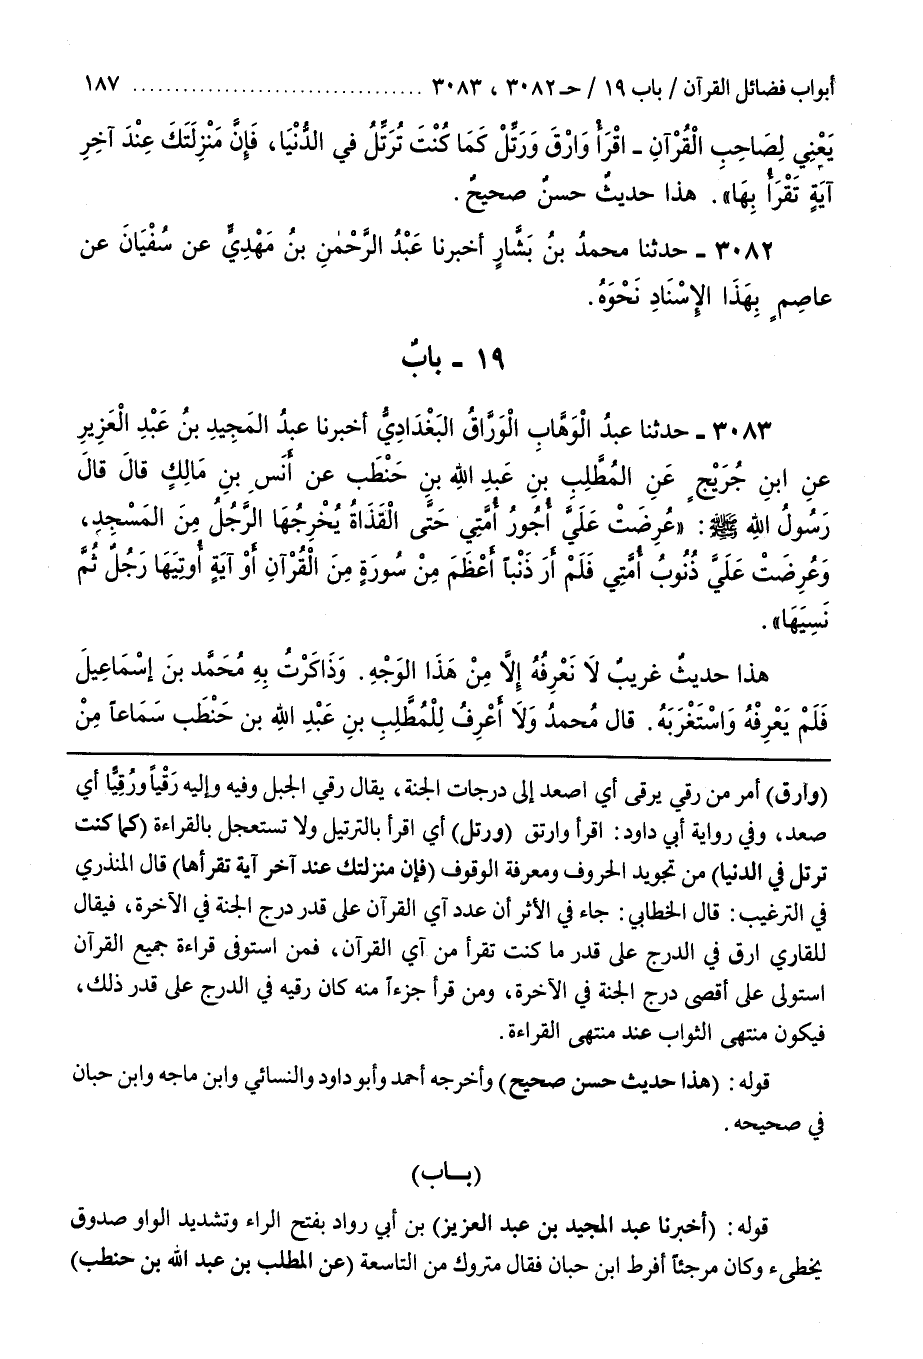 أبواب فضائل القرآن / باب ١٩ / حـ ٣٠٨٢ ، ٣٠٨٣ .................................. ١٨٧
يَعْنِي لِصَاحِبِ الْقُرْآنِ ـ اقْرَأْ وَارْقَ وَرَتِّلْ كَمَا كُنْتَ تُرَتِّلُ في الدُّنْيَا، فَإِنَّ مَنْزِلَتَكَ عِنْدَ آخِرِ
آيَةٍ تَقْرَأُ بِهَا». هذا حديثٌ حسنٌ صحيحٌ.
٣٠٨٢ ـ حدثنا محمدُ بنُ بَشَّارٍ أخبرنا عَبْدُ الرَّحْمٰنِ بنُ مَهْدِيٍّ عن سُفْيَانَ عن
عاصِمٍ بِهَذَا الإِسْنَادِ نَحْوَهُ.
١٩ ـ بابٌ
٣٠٨٣ ـ حدثنا عبدُ الْوَهَّابِ الْوَرَّاقُ البَغْدَادِيُّ أخبرنا عبدُ المَجِيدِ بنُ عَبْدِ الْعَزِيزِ
عنِ ابنِ جُرَيْجٍ عَنِ المُطَّلِبِ بنِ عَبدِ اللهِ بنِ حَنْطَب عن أَنَسِ بنِ مَالِكٍ قالَ قالَ
رَسُولُ اللهِ ﷺ: «عُرِضَتْ عَلَيَّ أُجُورُ أُمَّتِي حَتَّى الْقَذَاةُ يُخْرِجُهَا الرَّجُلُ مِنَ المَسْجِدِ،
وَعُرِضَتْ عَلَيَّ ذُنُوبُ أُمَّتِي فَلَمْ أَرَ ذَنْباً أَعْظَمَ مِنْ سُورَةٍ مِنَ الْقُرْآنِ أَوْ آيَةٍ أُوتِيَهَا رَجُلٌ ثُمَّ
نَسِيَهَا».
هذا حديثٌ غريبٌ لَا نَعْرِفُهُ إِلَّا مِنْ هَذَا الوَجْهِ. وَذَاكَرْتُ بِهِ مُحَمَّد بنَ إِسْمَاعِيلَ
فَلَمْ يَعْرِفْهُ وَاسْتَغْرَبَهُ. قال مُحمدُ وَلَا أَعْرِفُ لِلْمُطَّلِبِ بنِ عَبْدِ اللهِ بن حَنْطَب سَمَاعاً مِنْ
(وارق) أمر من رقي يرقى أي اصعد إلى درجات الجنة، يقال رقي الجبل وفيه وإليه رَقْياً ورُقِيًّا أي
صعد، وفي رواية أبي داود: اقرأ وارتق (ورتل) أي اقرأ بالترتيل ولا تستعجل بالقراءة (كما كنت
ترتل في الدنيا) من تجويد الحروف ومعرفة الوقوف (فإن منزلتك عند آخر آية تقرأها) قال المنذري
في الترغيب: قال الخطابي: جاء في الأثر أن عدد آي القرآن على قدر درج الجنة في الآخرة، فيقال
للقاري ارق في الدرج على قدر ما كنت تقرأ من آي القرآن، فمن استوفى قراءة جميع القرآن
استولى على أقصى درج الجنة في الآخرة، ومن قرأ جزءاً منه كان رقيه في الدرج على قدر ذلك،
فيكون منتهى الثواب عند منتهى القراءة.
قوله: (هذا حديث حسن صحيح) وأخرجه أحمد وأبو داود والنسائي وابن ماجه وابن حبان
في صحيحه.
(بـاب)
قوله: (أخبرنا عبد المجيد بن عبد العزيز) بن أبي رواد بفتح الراء وتشديد الواو صدوق
يخطىء وكان مرجئاً أفرط ابن حبان فقال متروك من التاسعة (عن المطلب بن عبد الله بن حنطب)